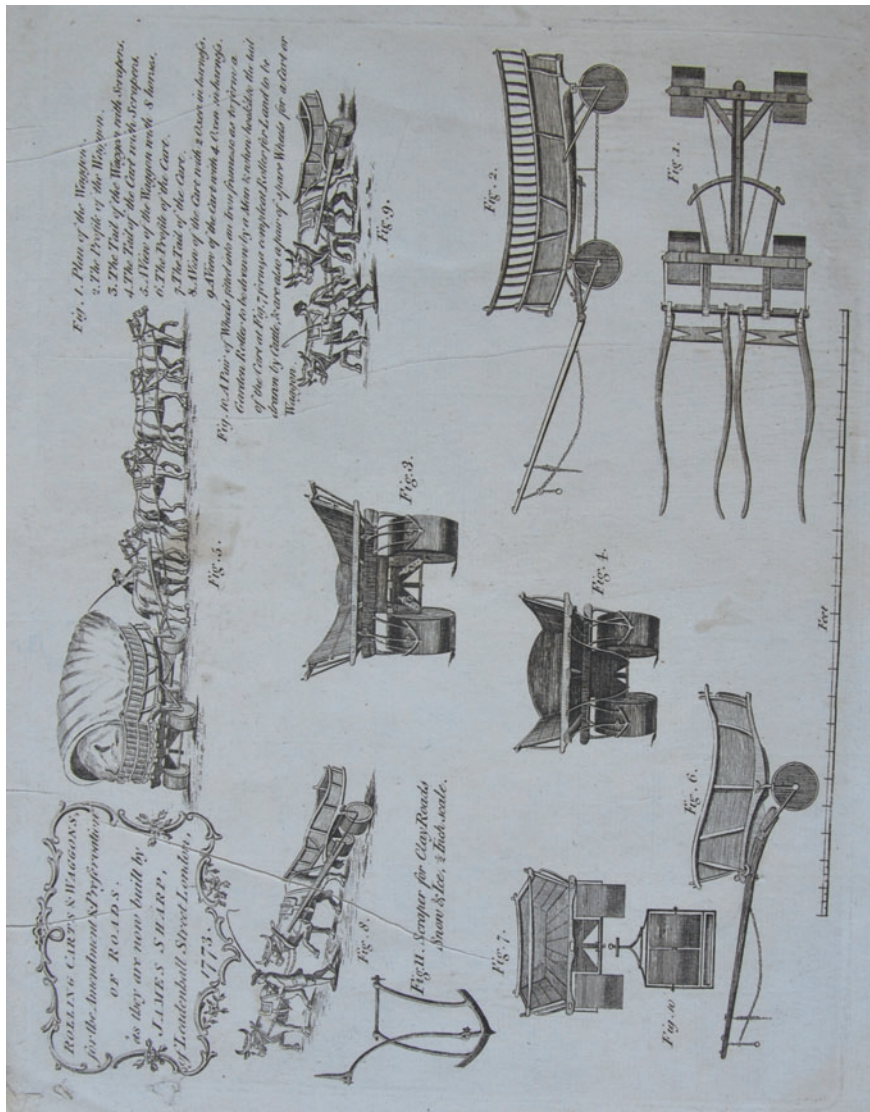 ROLLING CARTS & WAGGONS,
for the Amendment & Preſervation
OF ROADS,
as they are now built by
JAMES SHARP,
of Leadenhall Street London,
1773.
Fig. 1. Plan of the Waggon.
2. The Profile of the Waggon.
3. The Tail of the Waggon with Scrapers.
4. The Tail of the Cart with Scrapers.
5. A View of the Waggon with 8 horses.
6. The Profile of the Cart.
7. The Tail of the Cart.
8. A View of the Cart with 2 Oxen in harneſs.
9. A View of the Cart with 4 Oxen in harneſs.
Fig. 10. A Pair of Wheels fitted into an Iron frame so as to forme a
Garden Roller to be drawn by a Man & when hook'd to the tail
of the Cart at Fig. 7 forms a compleat Roller for Land to be
drawn by Cattle, & are also a pair of spare Wheels for a Cart or
Waggon.
Fig. 5.
Fig. 8.
Fig. 9.
Fig. 11. Scraper for Clay Roads
Snow & Ice, ½ Inch scale.
Fig. 3.
Fig. 7.
Fig. 4.
Fig. 2.
Fig. 10
Fig. 6.
Fig. 1.
Feet